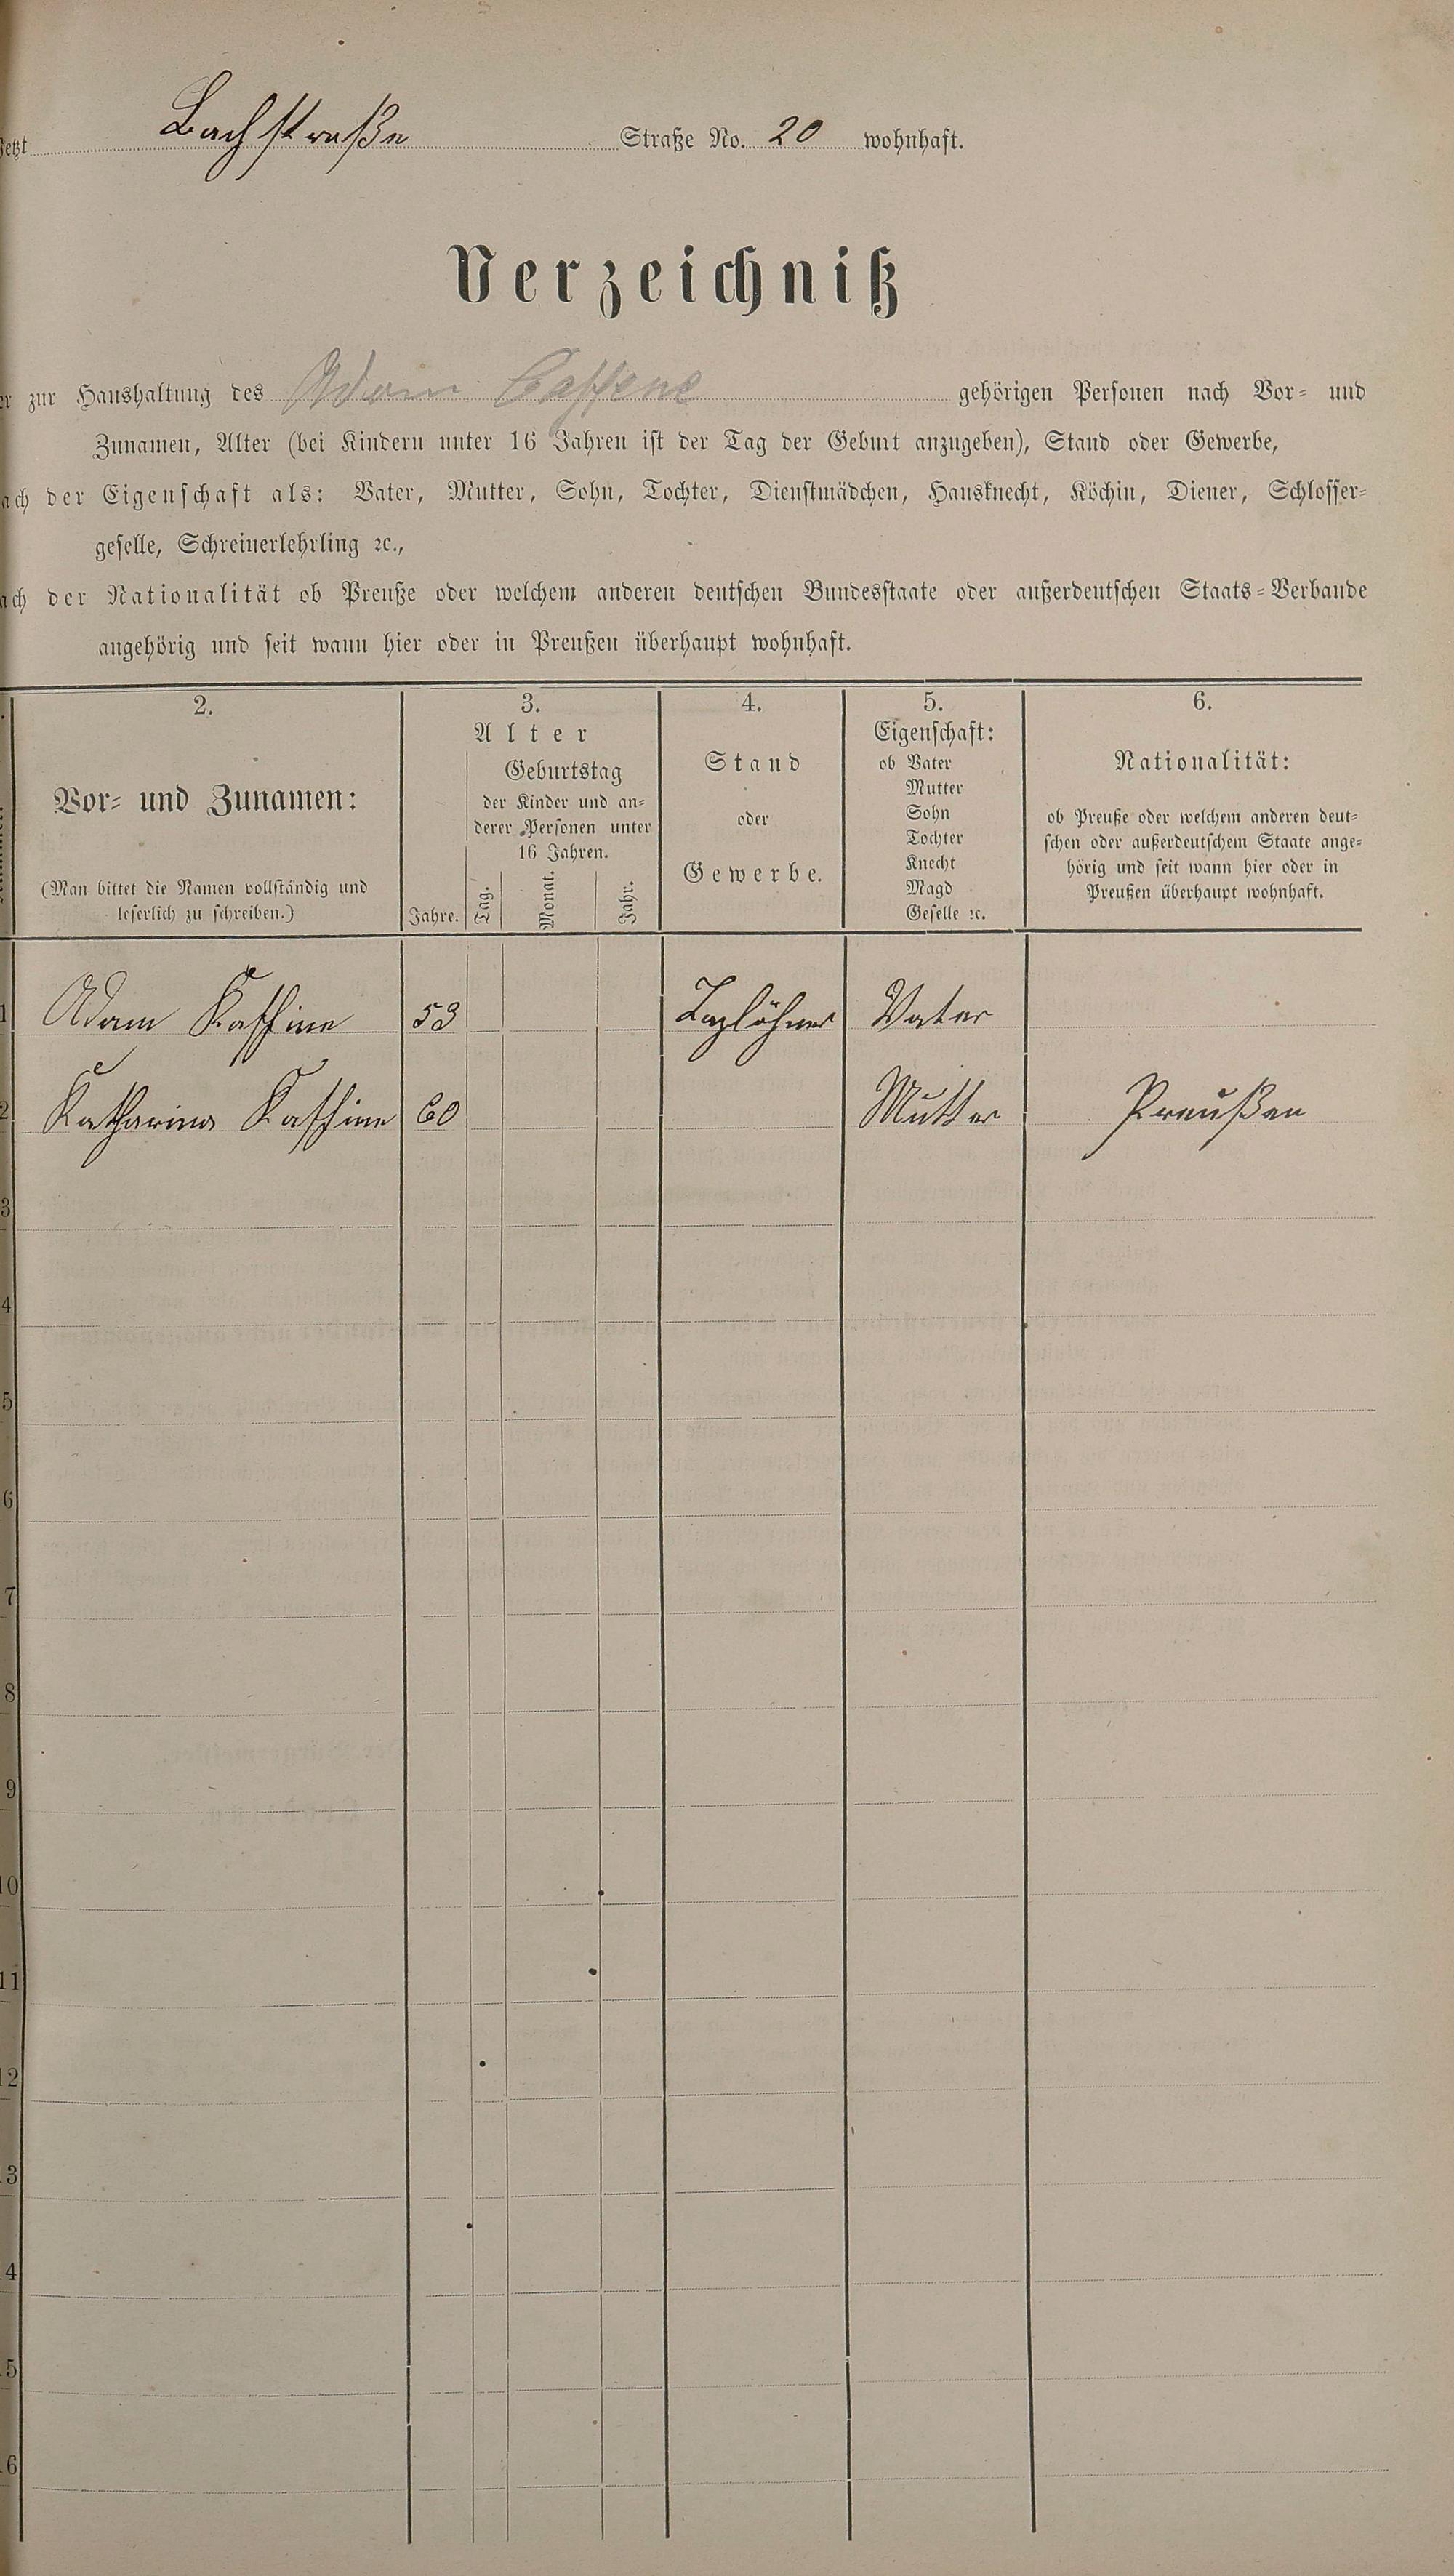 Jetzt Bachstraße Straße No. 20 wohnhaft.
Verzeichniß
er zur Haushaltung des Adam Caffene gehörigen Personen nach Vor- und
Zunamen, Alter (bei Kindern unter 16 Jahren ist der Tag der Geburt anzugeben), Stand oder Gewerbe,
ach der Eigenschaft als: Vater, Mutter, Sohn, Tochter, Dienstmädchen, Hausknecht, Köchin, Diener, Schlosser-
geselle, Schreinerlehrling ꝛc.,
ach der Nationalität ob Preuße oder welchem anderen deutschen Bundesstaate oder außerdeutschen Staats-Verbande
angehörig und seit wann hier oder in Preußen überhaupt wohnhaft.
2.
Vor- und Zunamen:
(Man bittet die Namen vollständig und
leserlich zu schreiben.)
3.
Alter
Geburtstag
der Kinder und an-
derer Personen unter
16 Jahren.
Jahre.
Tag.
Monat.
Jahr.
4.
Stand
oder
Gewerbe.
5.
Eigenschaft:
ob Vater
Mutter
Sohn
Tochter
Knecht
Magd
Geselle ꝛc.
6.
Nationalität:
ob Preuße oder welchem anderen deut-
schen oder außerdeutschem Staate ange-
hörig und seit wann hier oder in
Preußen überhaupt wohnhaft.
1 Adam Kaffine 53 Taglöhner Vater
2 Katharina Kaffine 60 Mutter Preußen
3
4
5
6
7
8
9
10
11
12
13
14
15
16